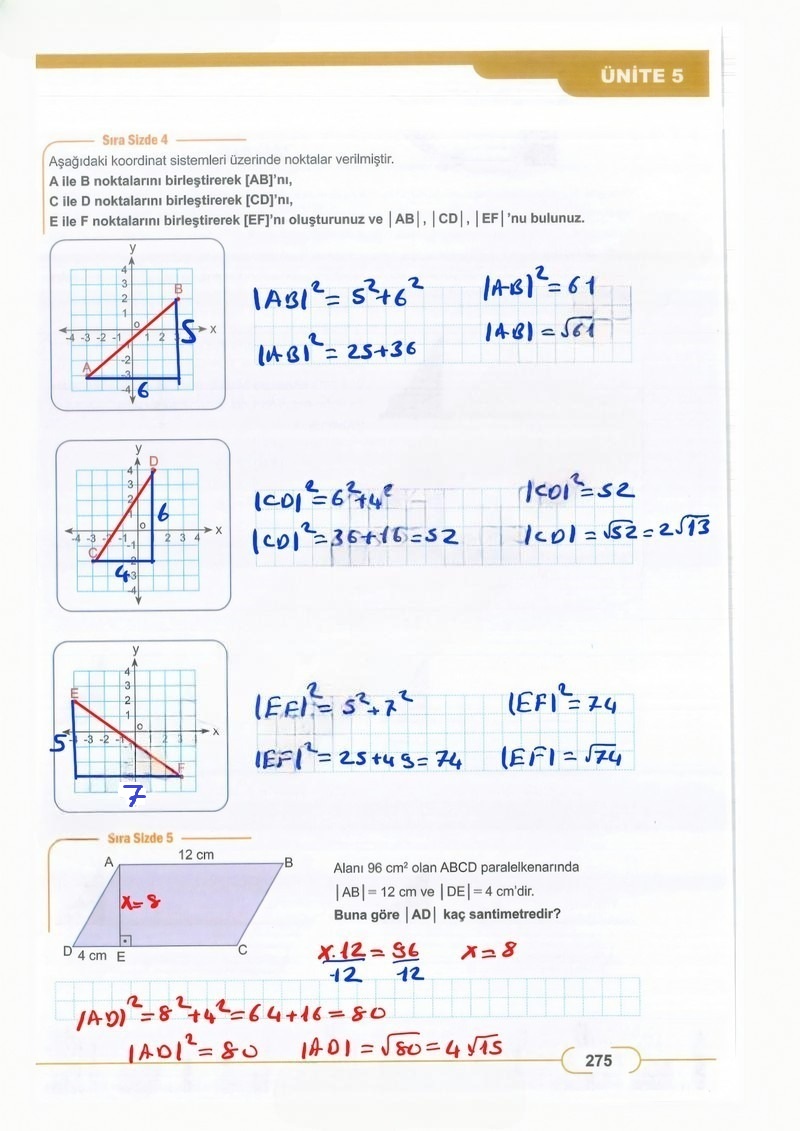 ÜNİTE 5
Sıra Sizde 4
Aşağıdaki koordinat sistemleri üzerinde noktalar verilmiştir.
A ile B noktalarını birleştirerek [AB]'nı,
C ile D noktalarını birleştirerek [CD]'nı,
E ile F noktalarını birleştirerek [EF]'nı oluşturunuz ve |AB|, |CD|, |EF| 'nu bulunuz.
y
4
3
2
1
B
o
-4 -3 -2 -1 1 2 x
5
A
-2
-3
-4
6
|AB|² = 5²+6² |AB|² = 61
|AB|² = 25+36 |AB| = √61
y
D
4
3
2
1
6
o
-4 -3 -1 2 3 4 x
-1
C
4
-3
-4
|CD|² = 6²+4² |CD|² = 52
|CD|² = 36+16 = 52 |CD| = √52 = 2√13
y
4
3
2
1
E
o
-3 -2 -1 1 2 3 x
5
F
7
|EF|² = 5²+7² |EF|² = 74
|EF|² = 25+49 = 74 |EF| = √74
Sıra Sizde 5
12 cm
A B
x=8
D 4 cm E C
Alanı 96 cm² olan ABCD paralelkenarında
|AB| = 12 cm ve |DE| = 4 cm'dir.
Buna göre |AD| kaç santimetredir?
x.12 = 96 x=8
12 12
|AD|² = 8²+4² = 64+16 = 80
|AD|² = 80 |AD| = √80 = 4√15
275